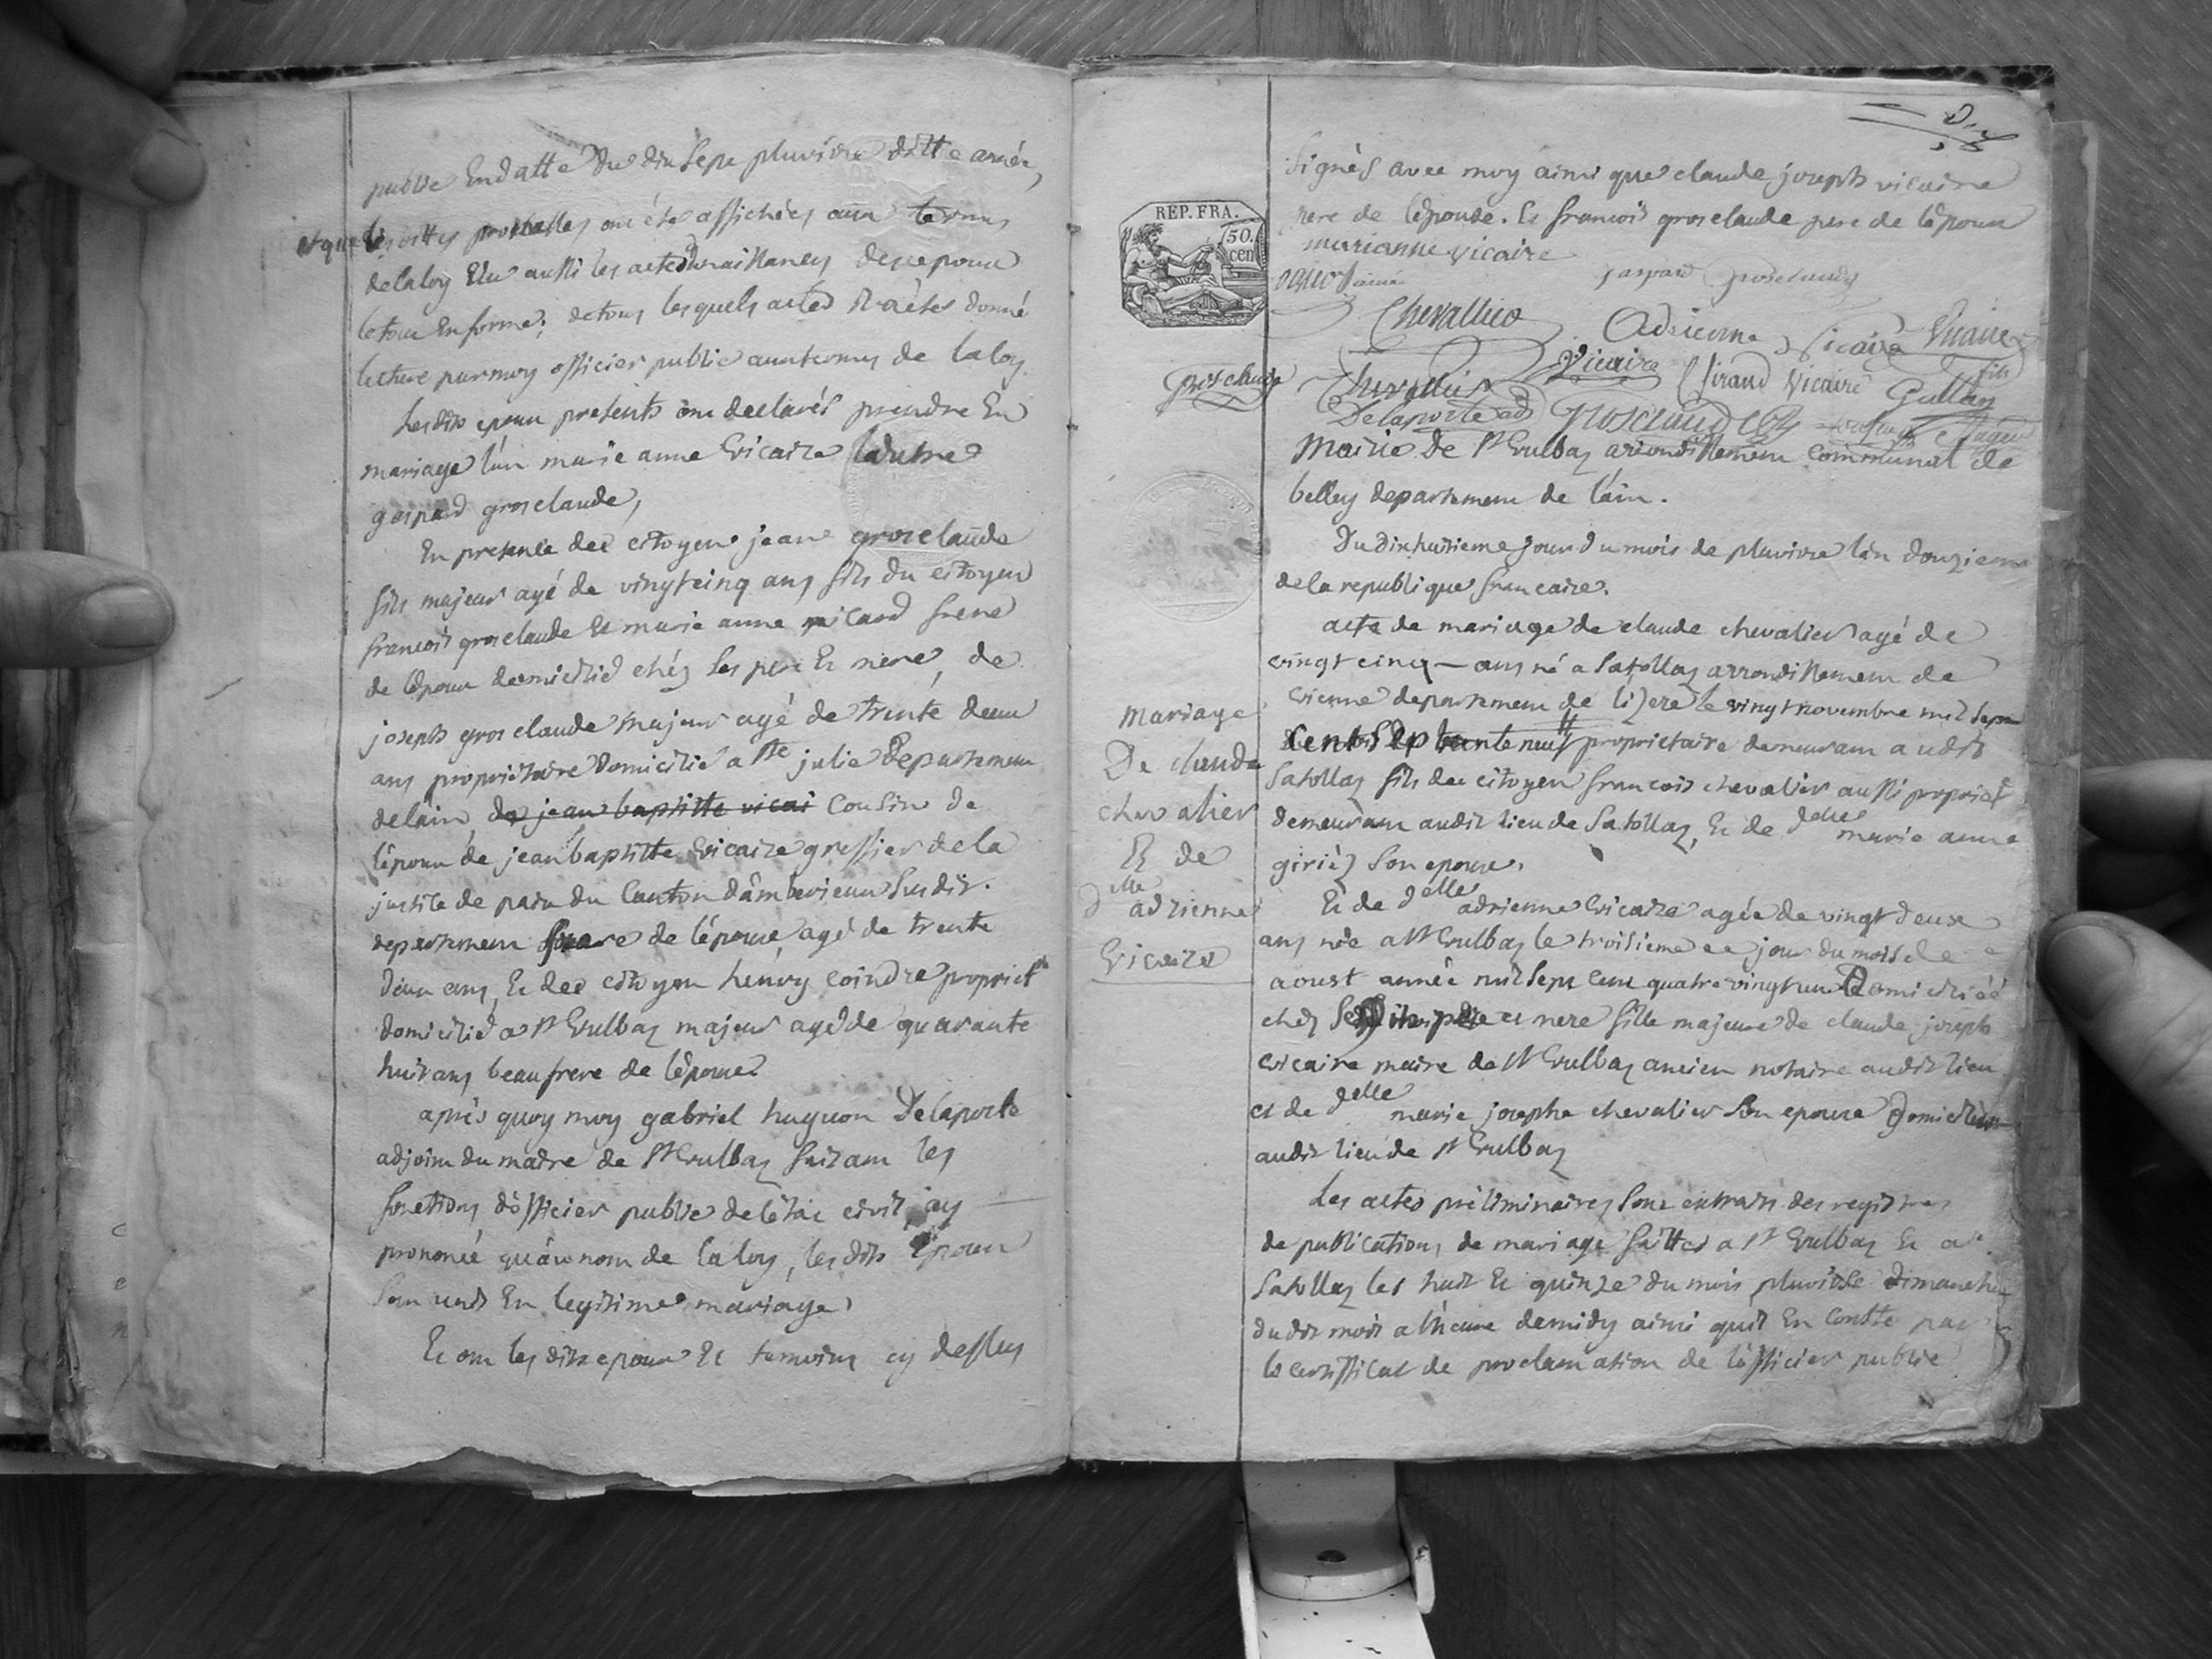 public En datte du dix Sept pluviose ditte année,
et que les dittes ont été affichées aux termes
de la loy Vu aussi les actes de naissances des epoux
le tout En forme; de tous lesquels actes Il a étés donné
lecture par moy officier public aux termes de la loy.
Lesdits epoux presents ont declarés prendre En
mariage l'un marie anne Vicaire l'autre
gaspard grosclaude,
En presence des citoyens jean grosclaude
fils majeur agé de vingt cinq ans fils du citoyen
francois grosclaude Et marie anne micard frere
de lépoux domicilié chéz ses pere Et mere, de
joseph grosclaude majeur agé de trente deux
ans proprietaire domicilié a Ste julie Departement
de lain, de jean baptitte vicai Cousin de
l'époux de jean baptitte Vicaire greffier de la
justice de paix du Canton d'ambérieux Susdit.
departement frere de l'épouse agé de trente
deux ans, Et des citoyen henry coindre propriet.re
domicilié a St Vulbaz majeur agé de quarante
huit ans beaufrere de lépouse.
aprés quoy moy gabriel huguon Delaporte
adjoint du maire de St Vulbaz faisant les
fonctions dofficier public de l'état civil, ay
prononcé qu'au nom de la loy, les dits Epoux
Sont unis En legitime mariage,
Et ont les dits epoux Et temoins cy dessus
REP. FRA.
50. cen
signés avec moy ainsi que claude joseph vicaire
pere de lépouse. Et francois grosclaude pere de lépoux
marianne vicaire
gaspard grosclaude
Chevallier
Adrienne Vicaire
Vicaire fils
grosclaude
Chevallier
Vicaire
Girand Vicaire
Delaporte adj
Grosclaude
Mairie de St Vulbaz arrondissement communal de
belley departement de l'ain.
Du dixhuitieme jour du mois de pluviose l'an douzieme
de la republique francaise.
acte de mariage de claude chevalier agé de
vingt cinq — ans né a Satollaz arrondissement de
vienne departement de l'izere le vingt novembre mil sept
cent Septante neuf proprietaire demeurant audit
Satollaz fils des citoyen francois chevalier aussi propriet.
demeurant audit lieu de Satollaz, Et de delle marie anne
giriéz Son epouse,
Et de delle adrienne Vicaire agée de vingt deux
ans née a St Vulbaz le troisieme jour du mois de
aoust année mil sept cent quatre vingt un Domiciliéé
chez pere et mere fille majeure de claude joseph
vicaire maire de St Vulbaz ancien notaire audit lieu
et de delle marie josephe chevalier Son epouse Domiciliés
audit lieu de St Vulbaz
Les actes préliminaires Sont extraits des registres
de publications de mariage faittes a St Vulbaz Et a
Satollaz les huit Et quinze du mois pluviose dimanche
dudit mois a l'heure de midy ainsi quil En conste par
le certifficat de proclamation de l'officier public
Mariage
De claude
chevalier
Et de
delle adrienne
Vicaire